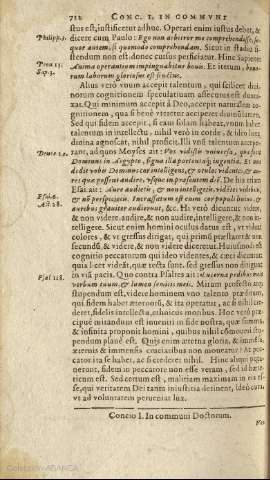 712 CONC. I. IN COMMVNI
stus est, iustificetur adhuc. Operari enim iustus debet, &
Philipp. 3. dicere cum Paulo: Ego non arbitror me comprehendisse, se-
quor autem, si quomodo comprehendam. Sicut in stadio si-
stendum non est donec cursus perficiatur. Hinc Sapiens:
Prou. 13. Anima operantium impinguabitur boni. Et iterum, bono-
Sap. 3. rum laborum gloriosus est fructus.
Alius verò vnum accepit talentum, qui scilicet diui-
norum cognitionem speculatiuam assecutus est duntaxat.
Qui minimum accepit à Deo, accepit naturalem
cognitionem, qua si benè vteretur acciperet diuinitatem.
Sed qui fidem accepit, si eam solam habeat, vnum habet
talentum in intellectu, nihil verò in corde, & ideo licet
diuina agnoscat, nihil proficit. Illi vnū talentum accepe-
Deuter. 2. runt, ad quos Moyses ait: Vos vidistis vniuersa, quæ fecit
Dominus in Aegypto, signa illa portentaq; ingentia. Et non
dedit vobis Dominus cor intelligens, & oculos videntes, & au-
res quæ possent audire, vsque in præsentem diē. De his etiam
Esaias ait: Aure audietis, & non intelligetis, videntes videbitis,
Esaiæ. & nō perspicietis. Incrassatum est enim cor populi huius, &
Act. 28. auribus grauiter audierunt, &c. Hi verò dicuntur videre,
& non videre, audire, & non audire, intelligere, & non in-
telligere. Sicut enim homini oculus datus est, vt videat
colores, & vt gressus dirigat, qui primū præstaret
secundū, & videre, & non videre diceretur. Huiusmodi ex
cognitio peccatorum qui ideo videntes, & cæci dicuntur
quia licet videāt, quæ recta sunt, sed gressus non dirigunt
Psal. 118. in viā pacis. Quo contra Psaltes ait: Lucerna pedibus meis
verbum tuum, & lumen semitis meis. Mirum profecto atq;
stupendum est, videre hominem vno talento præditum,
qui fidem habet æternorū, & ita operatur, ac si nihil cre-
deret, fidelis intellectu, ethnicus moribus. Hoc verò præ-
cipuè mirandum est inueniri in fide nostra, quæ summa,
& infinita proponit homini, quibus nihil commouetur
pendum planè est. Quis enim æterna gloria, & immensa,
æternis & immensis cruciatibus non moueatur? At pec-
cator ita se habet, ac si crederet nihil. Hinc aliqui
uenerunt, fidem in peccatore non esse veram, sed id hæreticum
est. Sed certum est, malitiam maximam in eis es-
se, qui veritatem Dei tanta iniustitia detinent,
vt ad voluntatem perueniat lux.
Concio I. in communi Doctorum.